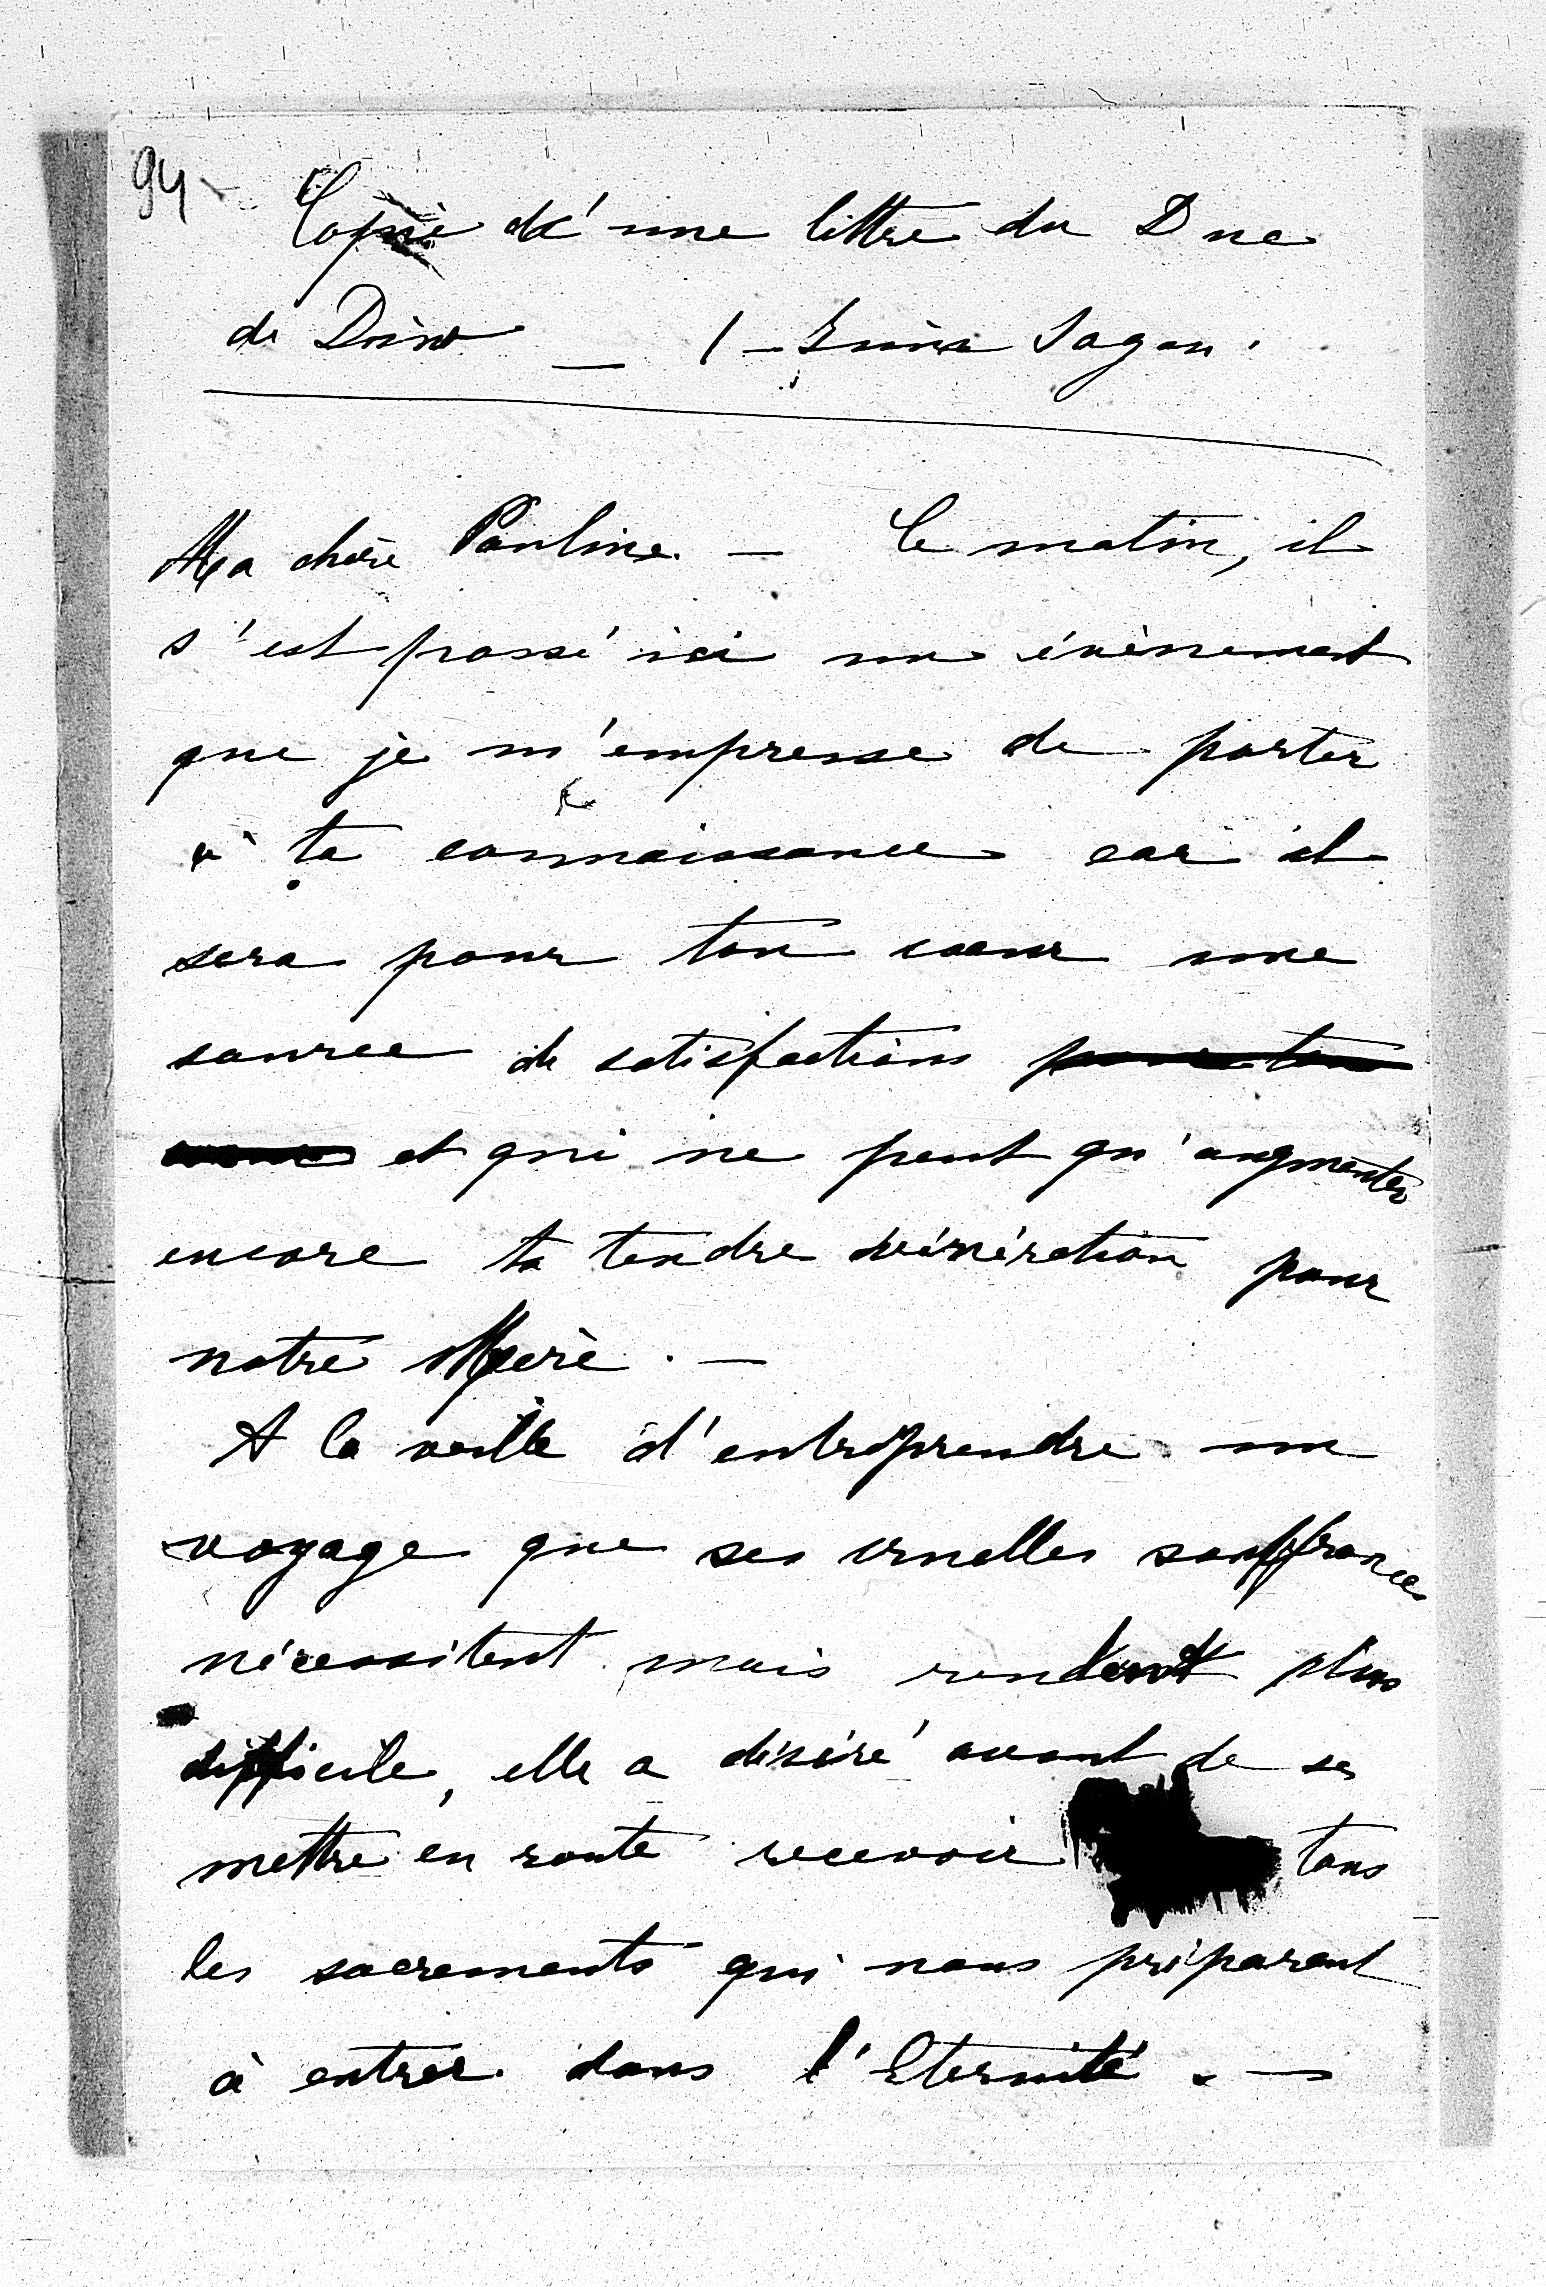 94
Copie d'une lettre du Duc
de Dino _ 1 - Juin Sagan.
Ma chère Pauline. - Ce matin, il
s'est passé ici un évènement
que je m'empresse de porter
à ta connaissance car il
sera pour ton coeur une
source de satisfactions pour ton
coeur et qui ne peut qu'augmenter
encore ta tendre vénération pour
notre Mère. -
A la veille d'entreprendre un
voyage que ses cruelles souffrances
nécessitent mais rendent plus
difficile, elle a désiré avant de se
mettre en route recevoir tous
les sacrements qui nous préparent
à entrer dans l'Eternité. -